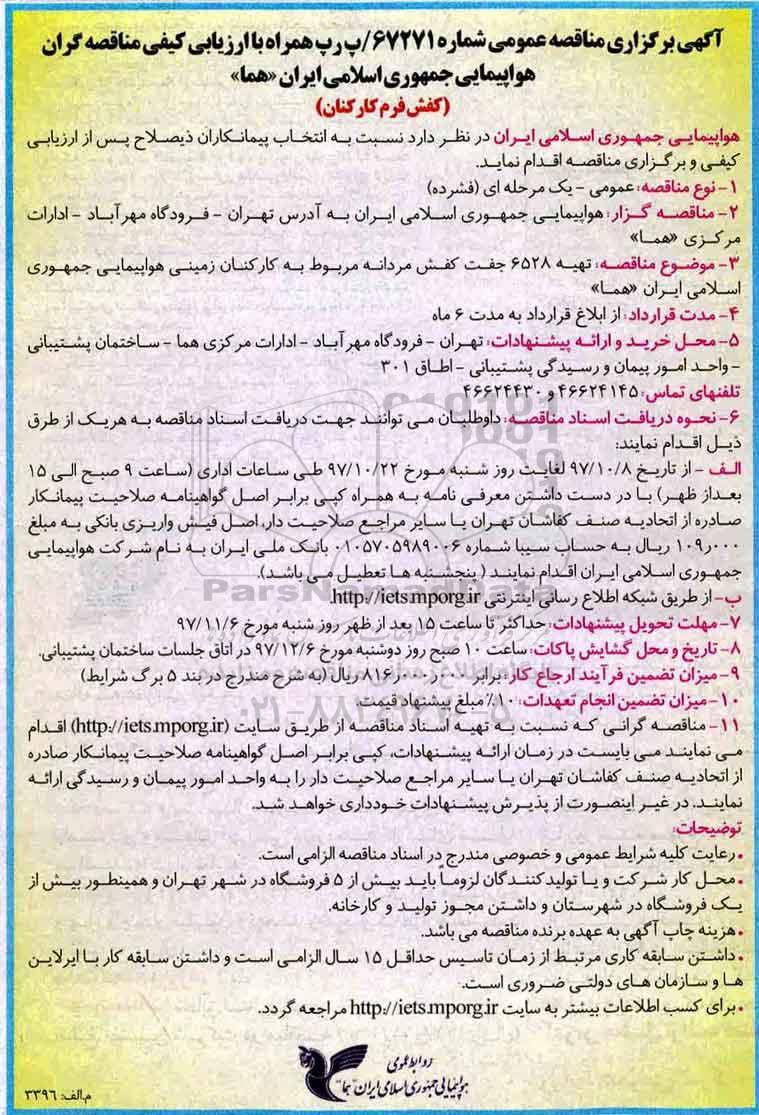 آگهی برگزاری مناقصه عمومی شماره ۶۷۲۷۱/پ رپ همراه با ارزیابی کیفی مناقصه گران
هواپیمایی جمهوری اسلامی ایران «هما»
(کفش فرم کارکنان)
هواپیمایی جمهوری اسلامی ایران در نظر دارد نسبت به انتخاب پیمانکاران ذیصلاح پس از ارزیابی
کیفی و برگزاری مناقصه اقدام نماید.
۱- نوع مناقصه: عمومی - یک مرحله ای (فشرده)
۲- مناقصه گزار: هواپیمایی جمهوری اسلامی ایران به آدرس تهران - فرودگاه مهرآباد - ادارات
مرکزی «هما»
۳- موضوع مناقصه: تهیه ۶۵۲۸ جفت کفش مردانه مربوط به کارکنان زمینی هواپیمایی جمهوری
اسلامی ایران «هما»
۴- مدت قرارداد: از ابلاغ قرارداد به مدت ۶ ماه
۵- محل خرید و ارائه پیشنهادات: تهران - فرودگاه مهرآباد - ادارات مرکزی هما - ساختمان پشتیبانی
- واحد امور پیمان و رسیدگی پشتیبانی - اطاق ۳۰۱
تلفنهای تماس: ۴۶۶۲۴۱۴۵ و ۴۶۶۲۴۴۳۰
۶- نحوه دریافت اسناد مناقصه: داوطلبان می توانند جهت دریافت اسناد مناقصه به هریک از طرق
ذیل اقدام نمایند:
الف - از تاریخ ۹۷/۱۰/۸ لغایت روز شنبه مورخ ۹۷/۱۰/۲۲ طی ساعات اداری (ساعت ۹ صبح الی ۱۵
بعداز ظهر) با در دست داشتن معرفی نامه به همراه کپی برابر اصل گواهینامه صلاحیت پیمانکار
صادره از اتحادیه صنف کفاشان تهران یا سایر مراجع صلاحیت دار، اصل فیش واریزی بانکی به مبلغ
۱۰۹٫۰۰۰ ریال به حساب سیبا شماره ۰۱۰۵۷۰۵۹۸۹۰۰۶ بانک ملی ایران به نام شرکت هواپیمایی
جمهوری اسلامی ایران اقدام نمایند (پنجشنبه ها تعطیل می باشد).
ب- از طریق شبکه اطلاع رسانی اینترنتی http://iets.mporg.ir.
۷- مهلت تحویل پیشنهادات: حداکثر تا ساعت ۱۵ بعد از ظهر روز شنبه مورخ ۹۷/۱۱/۶
۸- تاریخ و محل گشایش پاکات: ساعت ۱۰ صبح روز دوشنبه مورخ ۹۷/۱۲/۶ در اتاق جلسات ساختمان پشتیبانی.
۹- میزان تضمین فرآیند ارجاع کار: برابر ۸۱۶٫۰۰۰٫۰۰۰ ریال (به شرح مندرج در بند ۵ برگ شرایط)
۱۰- میزان تضمین انجام تعهدات: ۱۰٪ مبلغ پیشنهاد قیمت.
۱۱- مناقصه گرانی که نسبت به تهیه اسناد مناقصه از طریق سایت (http://iets.mporg.ir) اقدام
می نمایند می بایست در زمان ارائه پیشنهادات، کپی برابر اصل گواهینامه صلاحیت پیمانکار صادره
از اتحادیه صنف کفاشان تهران یا سایر مراجع صلاحیت دار را به واحد امور پیمان و رسیدگی ارائه
نمایند. در غیر اینصورت از پذیرش پیشنهادات خودداری خواهد شد.
توضیحات:
• رعایت کلیه شرایط عمومی و خصوصی مندرج در اسناد مناقصه الزامی است.
• محل کار شرکت و یا تولیدکنندگان لزوماً باید بیش از ۵ فروشگاه در شهر تهران و همینطور بیش از
یک فروشگاه در شهرستان و داشتن مجوز تولید و کارخانه.
• هزینه چاپ آگهی به عهده برنده مناقصه می باشد.
• داشتن سابقه کاری مرتبط از زمان تاسیس حداقل ۱۵ سال الزامی است و داشتن سابقه کار با ایرلاین
ها و سازمان های دولتی ضروری است.
• برای کسب اطلاعات بیشتر به سایت http://iets.mporg.ir مراجعه گردد.
روابط عمومی
هواپیمایی جمهوری اسلامی ایران "هما"
م.الف: ۳۳۹۶